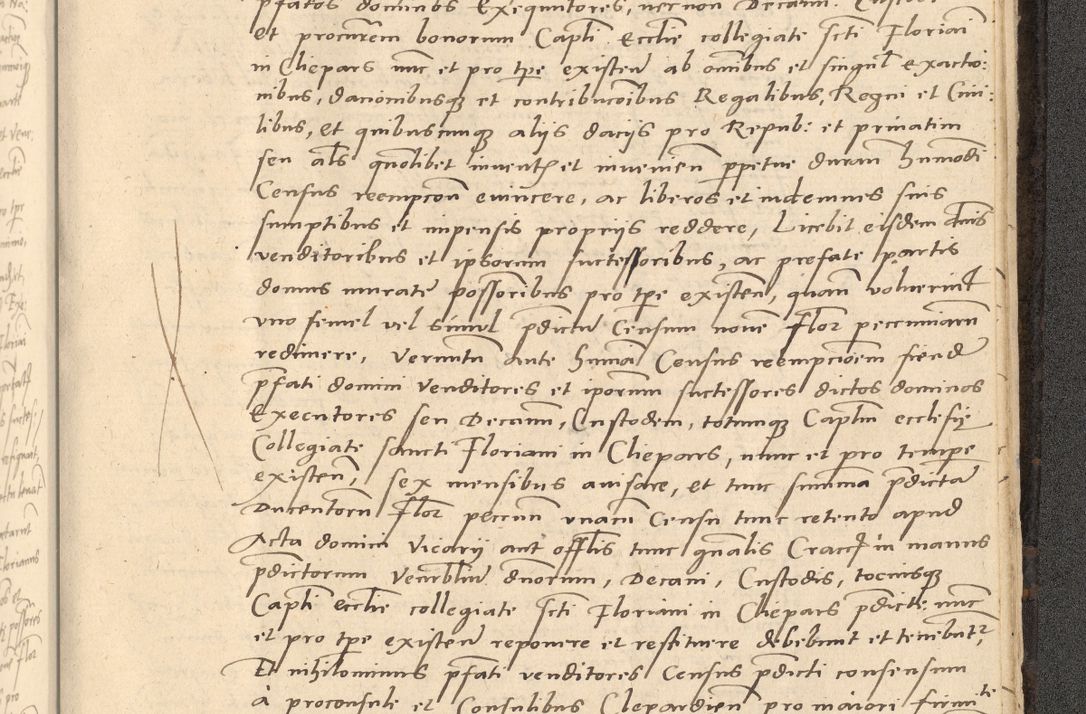 pfatos dominos Exequutores, necnon Decanu. Custod
et procurem bonorum Capli Ecclie collegiate scti Floriani
in Clepars nunc et pro tpe existen ab omnibus et singul exactio:
nibus, dacionibusq et contribucoibus Regalibus, Regni et Civi:
libus, et quibuscunq alijs dacijs pro Repub: et privatim
seu als quolibet invent et invenien ppetue duran humodi
Census reempcon evincere, ac liberos et indemnes suis
sumptibus et impensis proprijs reddere, Licebit eisdem dnis
venditoribus et ipsorum successoribus, ac prefate partis
domus murate possoribus pro tpe existen, quam voluerint
uno semel vel simul pdictu Censum novem flor pecuniarum
redimere, Verumtn ante humoi Census reempcioem fiend
pfati domini venditores et iporum successores dictos dominos
Executores seu Decanum, Custodem, totumq Caplm ecclesie
Collegiate sancti Floriani in Clepars, nunc et pro tempe
existen, sex mensibus avisare, et tunc summa pdicta
Ducentoru Flor pecun unacu Censu tunc retento apud
Acta domini Vicarij aut offlis tunc gnalis Cracc in manus
pdictorum Venrbliu dnorum, Decani, Custodis, tociusq
Capli Ecclie collegiate scti Floriani in Clepars pdicti nunc
et pro tpe existen reponere et restituere debebunt et tenebuntr
Et nihilominus pfati venditores Census pdicti consensum
à proconsule et Consulibus Clepardien pro maiori firmite